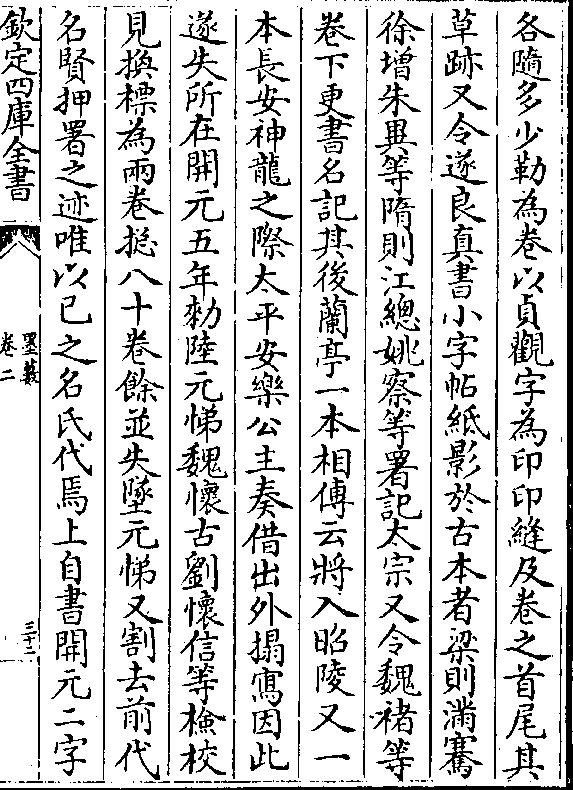 各隨多少勒為卷以貞觀字為印印縫及卷之首尾其
草跡又令遂良真書小字帖紙影於古本者梁則滿騫
徐增朱異等隋則江總姚察等署記太宗又令魏褚等
卷下更書名記其後蘭亭一本相傳云將入昭陵又一
本長安神龍之際太平安樂公主奏借出外搨寫因此
遂失所在開元五年勑陸元悌魏懷古劉懷信等檢校
見換標為兩卷揔八十卷餘並失墜元悌又割去前代
名賢押署之迹唯以已之名氏代焉上自書開元二字
欽定四庫全書
墨藪
卷二
三十二